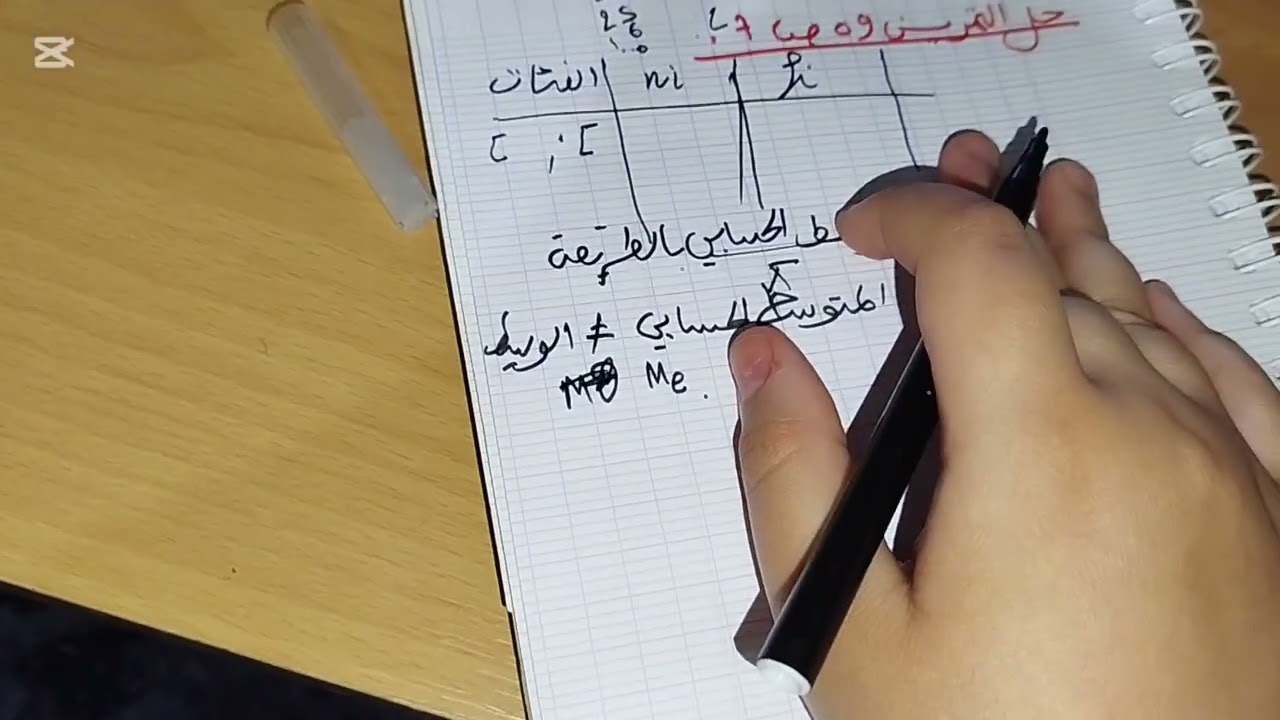 حل التمرين 09 ص
الفئات ni fi
[ ; [
الحسابي بالطريقة
المتوسط الحسابي ≠ الوسيط
Me .